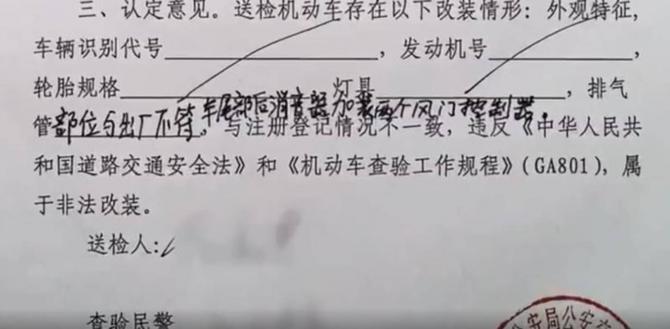 三、认定意见。送检机动车存在以下改装情形：外观特征,
车辆识别代号，发动机号,
轮胎规格 灯具，排气
管部位与出厂不符 车尾部后消音器加装两个风门控制器。
，与注册登记情况不一致，违反《中华人民共
和国道路交通安全法》和《机动车查验工作规程》(GA801)，属
于非法改装。
送检人:
查验民警
安局公安